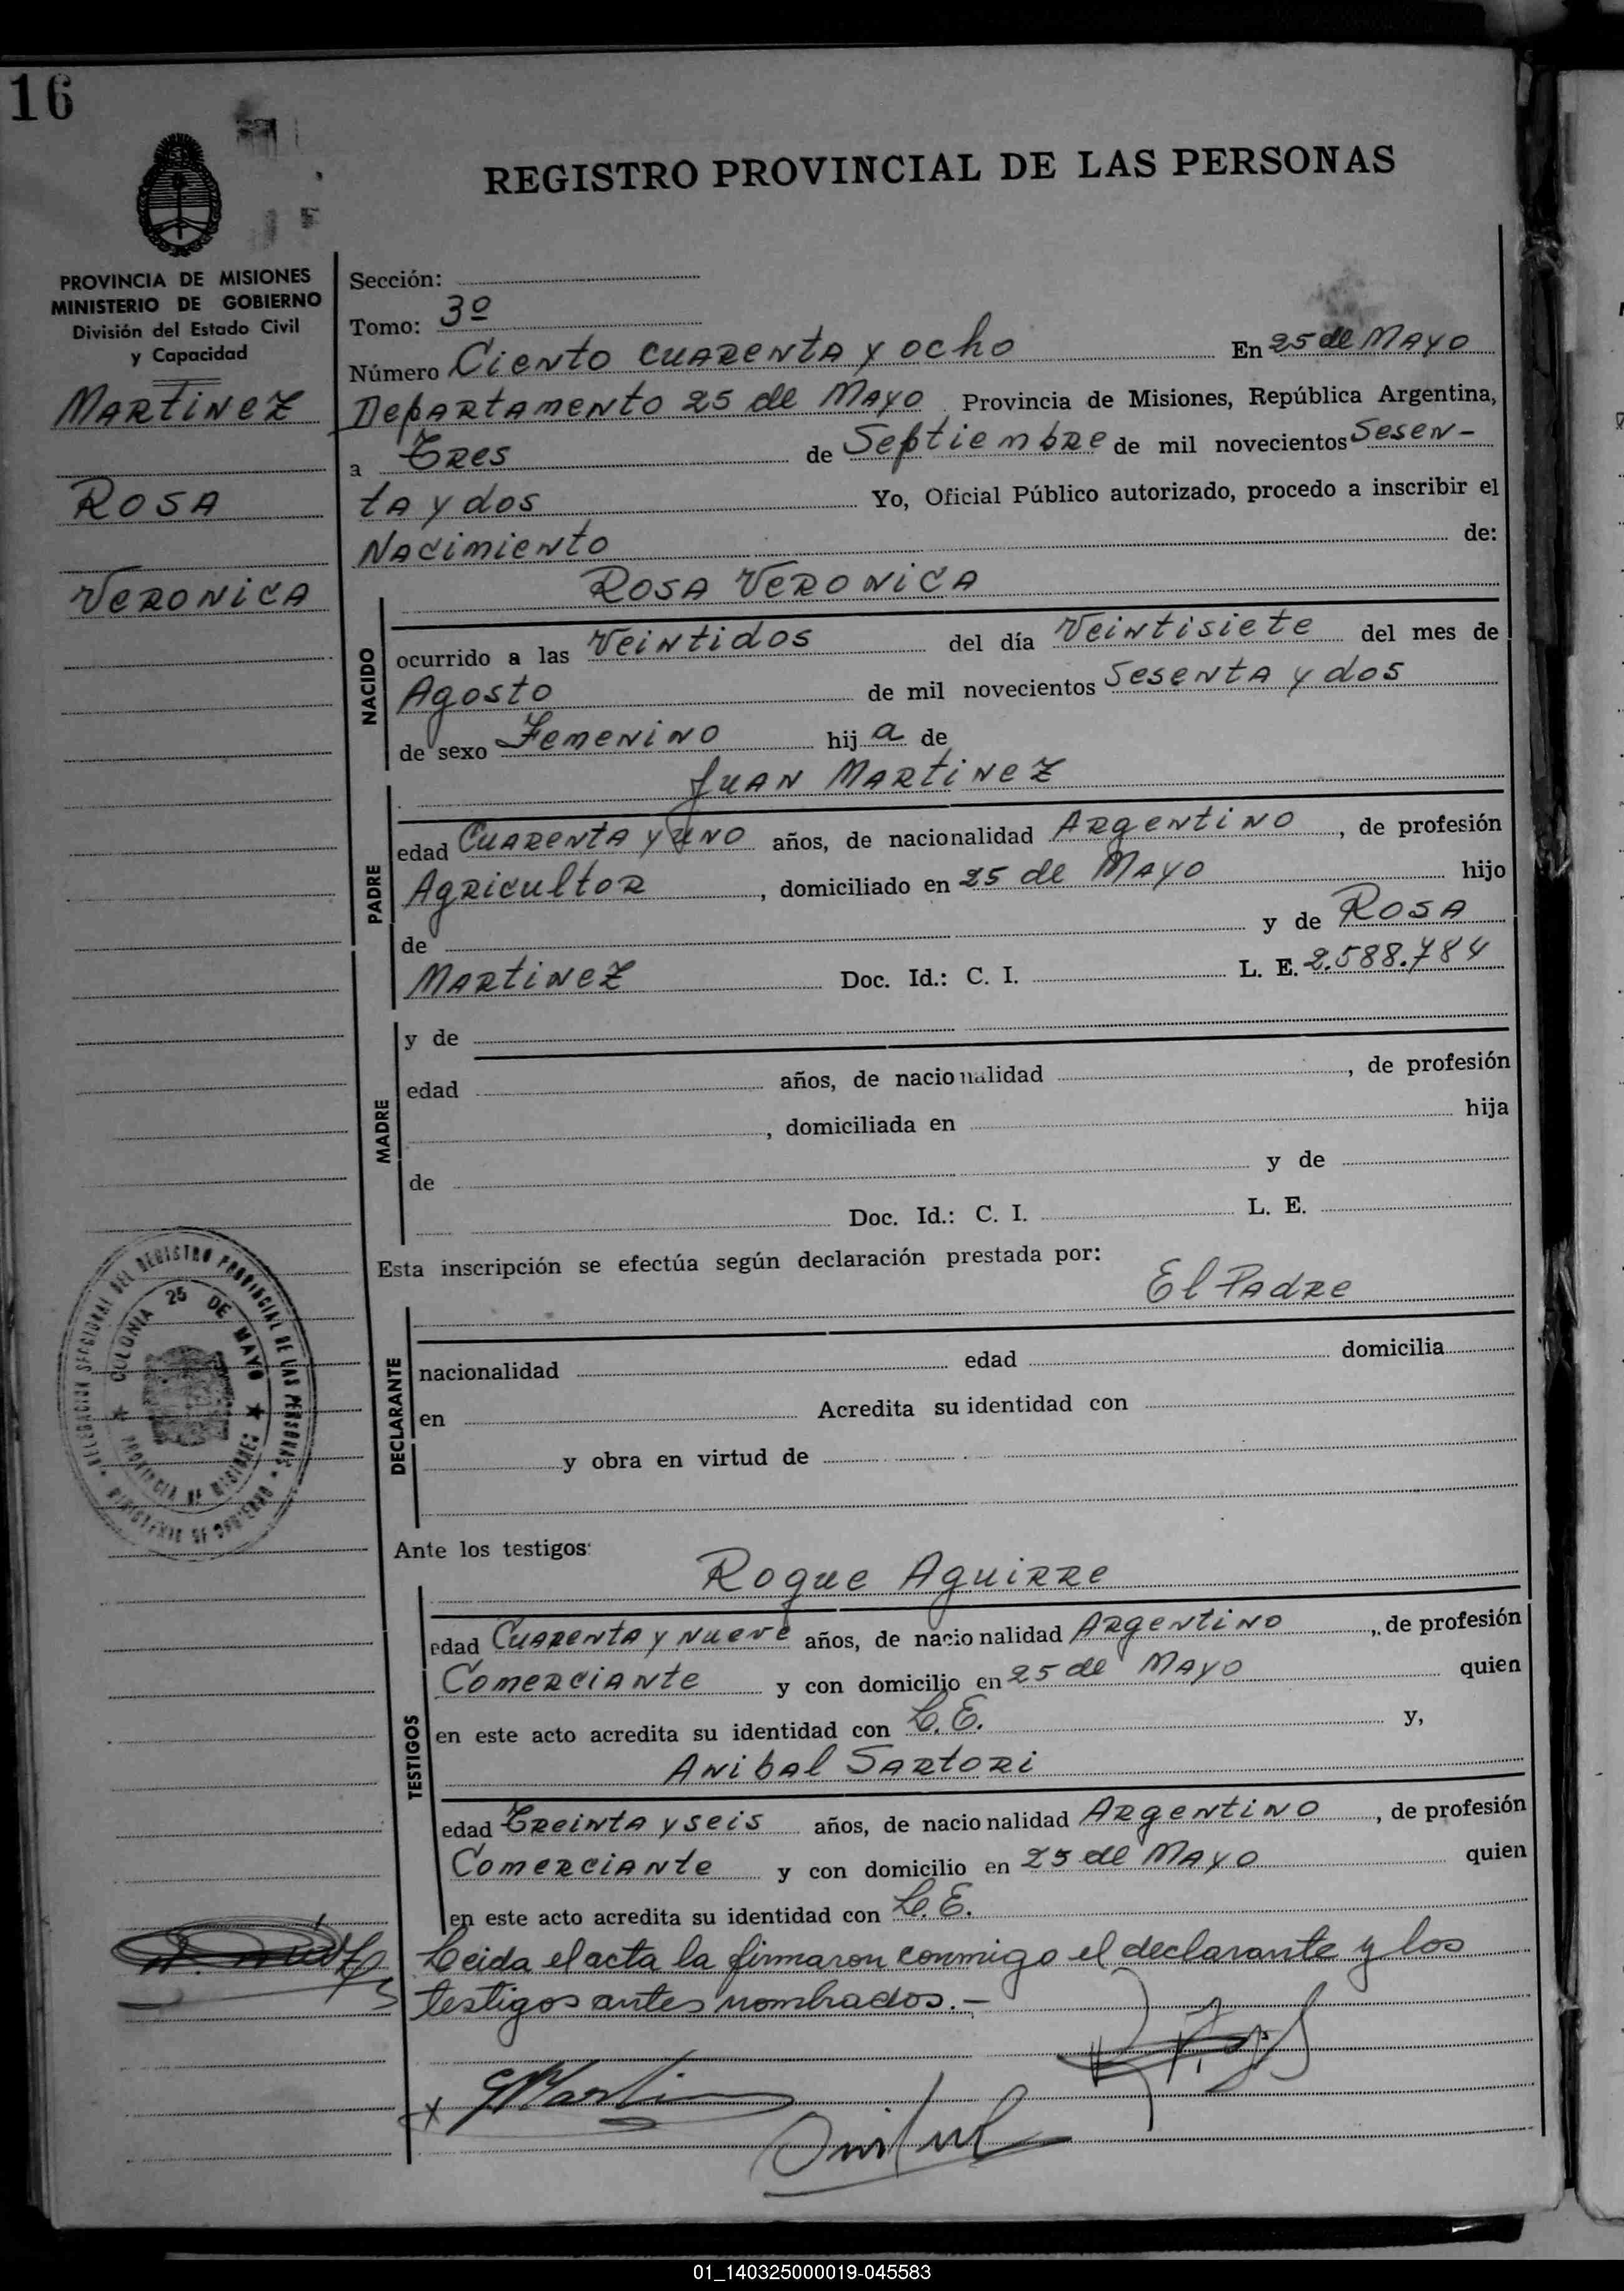 16
REGISTRO PROVINCIAL DE LAS PERSONAS
PROVINCIA DE MISIONES
MINISTERIO DE GOBIERNO
División del Estado Civil
y Capacidad
MARTINEZ
ROSA
VERONICA
Sección:
Tomo: 3º
Número Ciento CUARENTA y ocho En 25 de MAYO
DepARTAMENTO 25 de MAYO Provincia de Misiones, República Argentina,
a TRes de SeptiembRe de mil novecientos SeseN-
tA y dos Yo, Oficial Público autorizado, procedo a inscribir el
NAcimieNto de:
ROSA VERONICA
NACIDO
ocurrido a las VeiNtidos del día VeiNtisiete del mes de
Agosto de mil novecientos SeseNtA y dos
de sexo FemeNiNO hij a de
JUAN MARTINEZ
PADRE
edad CUAReNtA y UNO años, de nacionalidad ARgeNtiNO, de profesión
AgRicultoR, domiciliado en 25 de MAYO hijo
de y de ROSA
MARTINEZ Doc. Id.: C. I. L. E. 2.588.784
MADRE
y de
edad años, de nacionalidad , de profesión
, domiciliada en hija
de y de
Doc. Id.: C. I. L. E.
Esta inscripción se efectúa según declaración prestada por:
El PAdRe
DECLARANTE
nacionalidad edad domicilia
en Acredita su identidad con
y obra en virtud de
DELEGACION SECCIONAL DEL REGISTRO PROVINCIAL DE LAS PERSONAS
MINISTERIO DE GOBIERNO
COLONIA 25 DE MAYO
PROVINCIA DE MISIONES
Ante los testigos:
Roque AguiRRe
TESTIGOS
edad CUAReNtA y Nueve años, de nacionalidad ARgeNtiNO, de profesión
ComeRciANte y con domicilio en 25 de MAYO quien
en este acto acredita su identidad con L. E. y,
ANibAl SARtoRi
edad TReiNtA y seis años, de nacionalidad ARgeNtiNO, de profesión
ComeRciANte y con domicilio en 25 de MAYO quien
en este acto acredita su identidad con L. E.
Leida el acta la firmaron conmigo el declarante y los
testigos antes nombrados.-
01_140325000019-045583